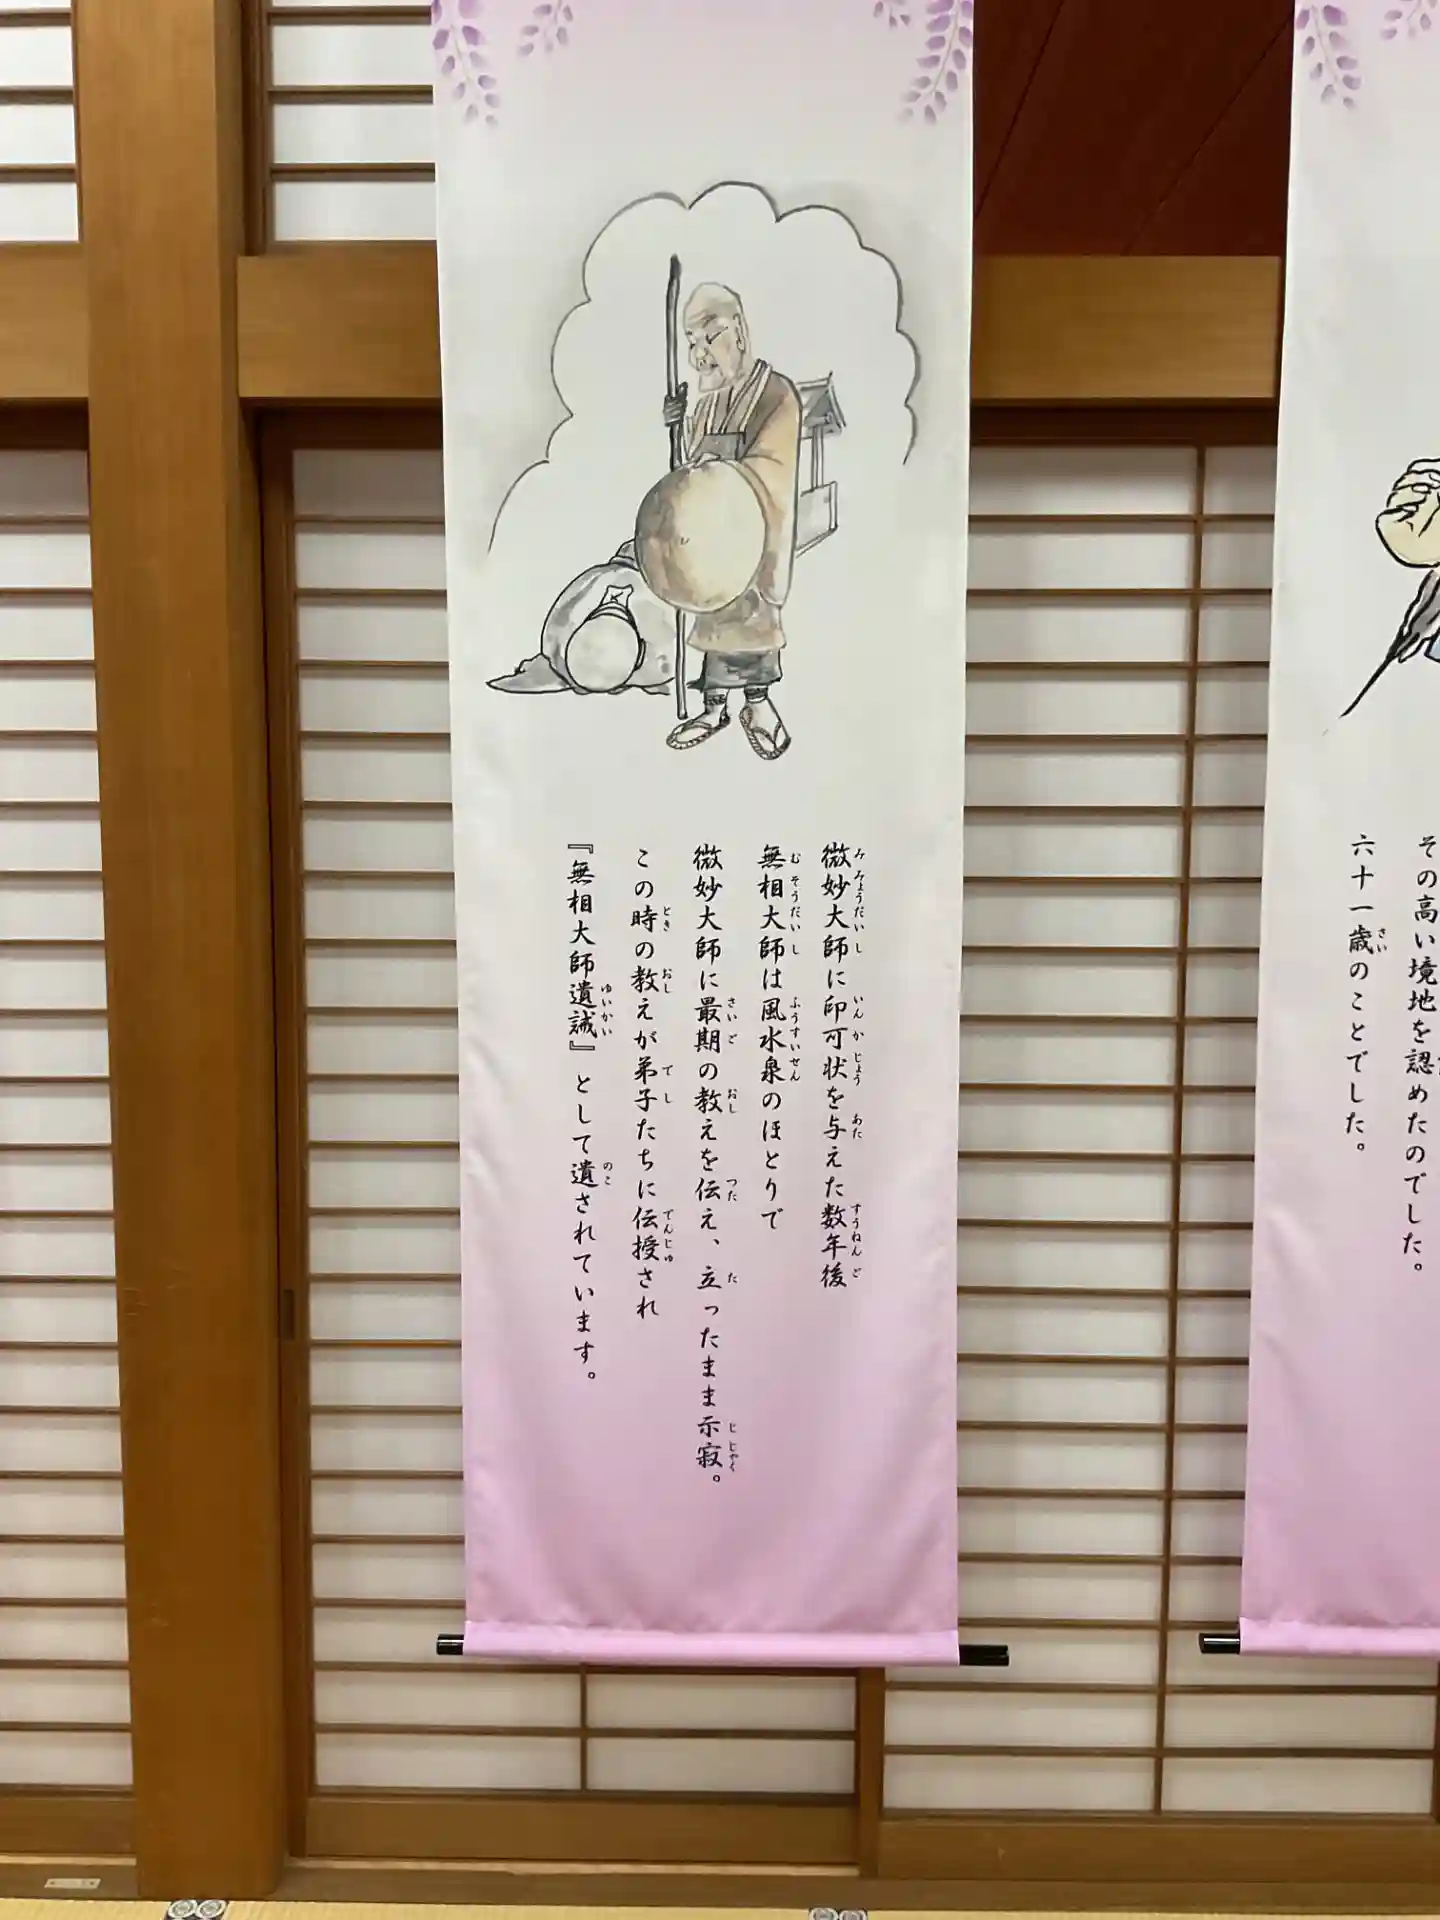 その高い境地を認めたのでした。
六十一歳のことでした。
微妙大師に印可状を与えた数年後
無相大師は風水泉のほとりで
微妙大師に最期の教えを伝え、立ったまま示寂。
この時の教えが弟子たちに伝授され
『無相大師遺誡』として遺されています。